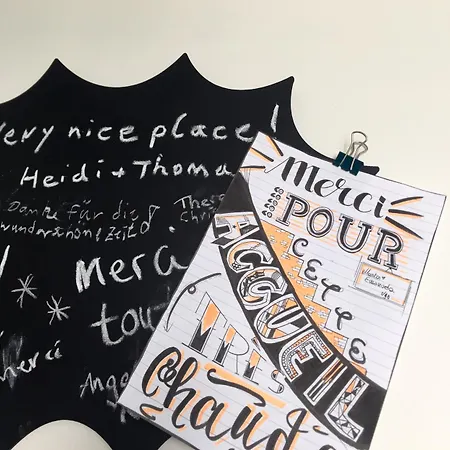 very nice place!
Heidi + Thoma
Danke für die
wunderschöne Zeit!
These
Chris
Merci
tou
merci
Ango
Merci
POUR
CETTE
ACCUEIL
TRÈS
Chaud